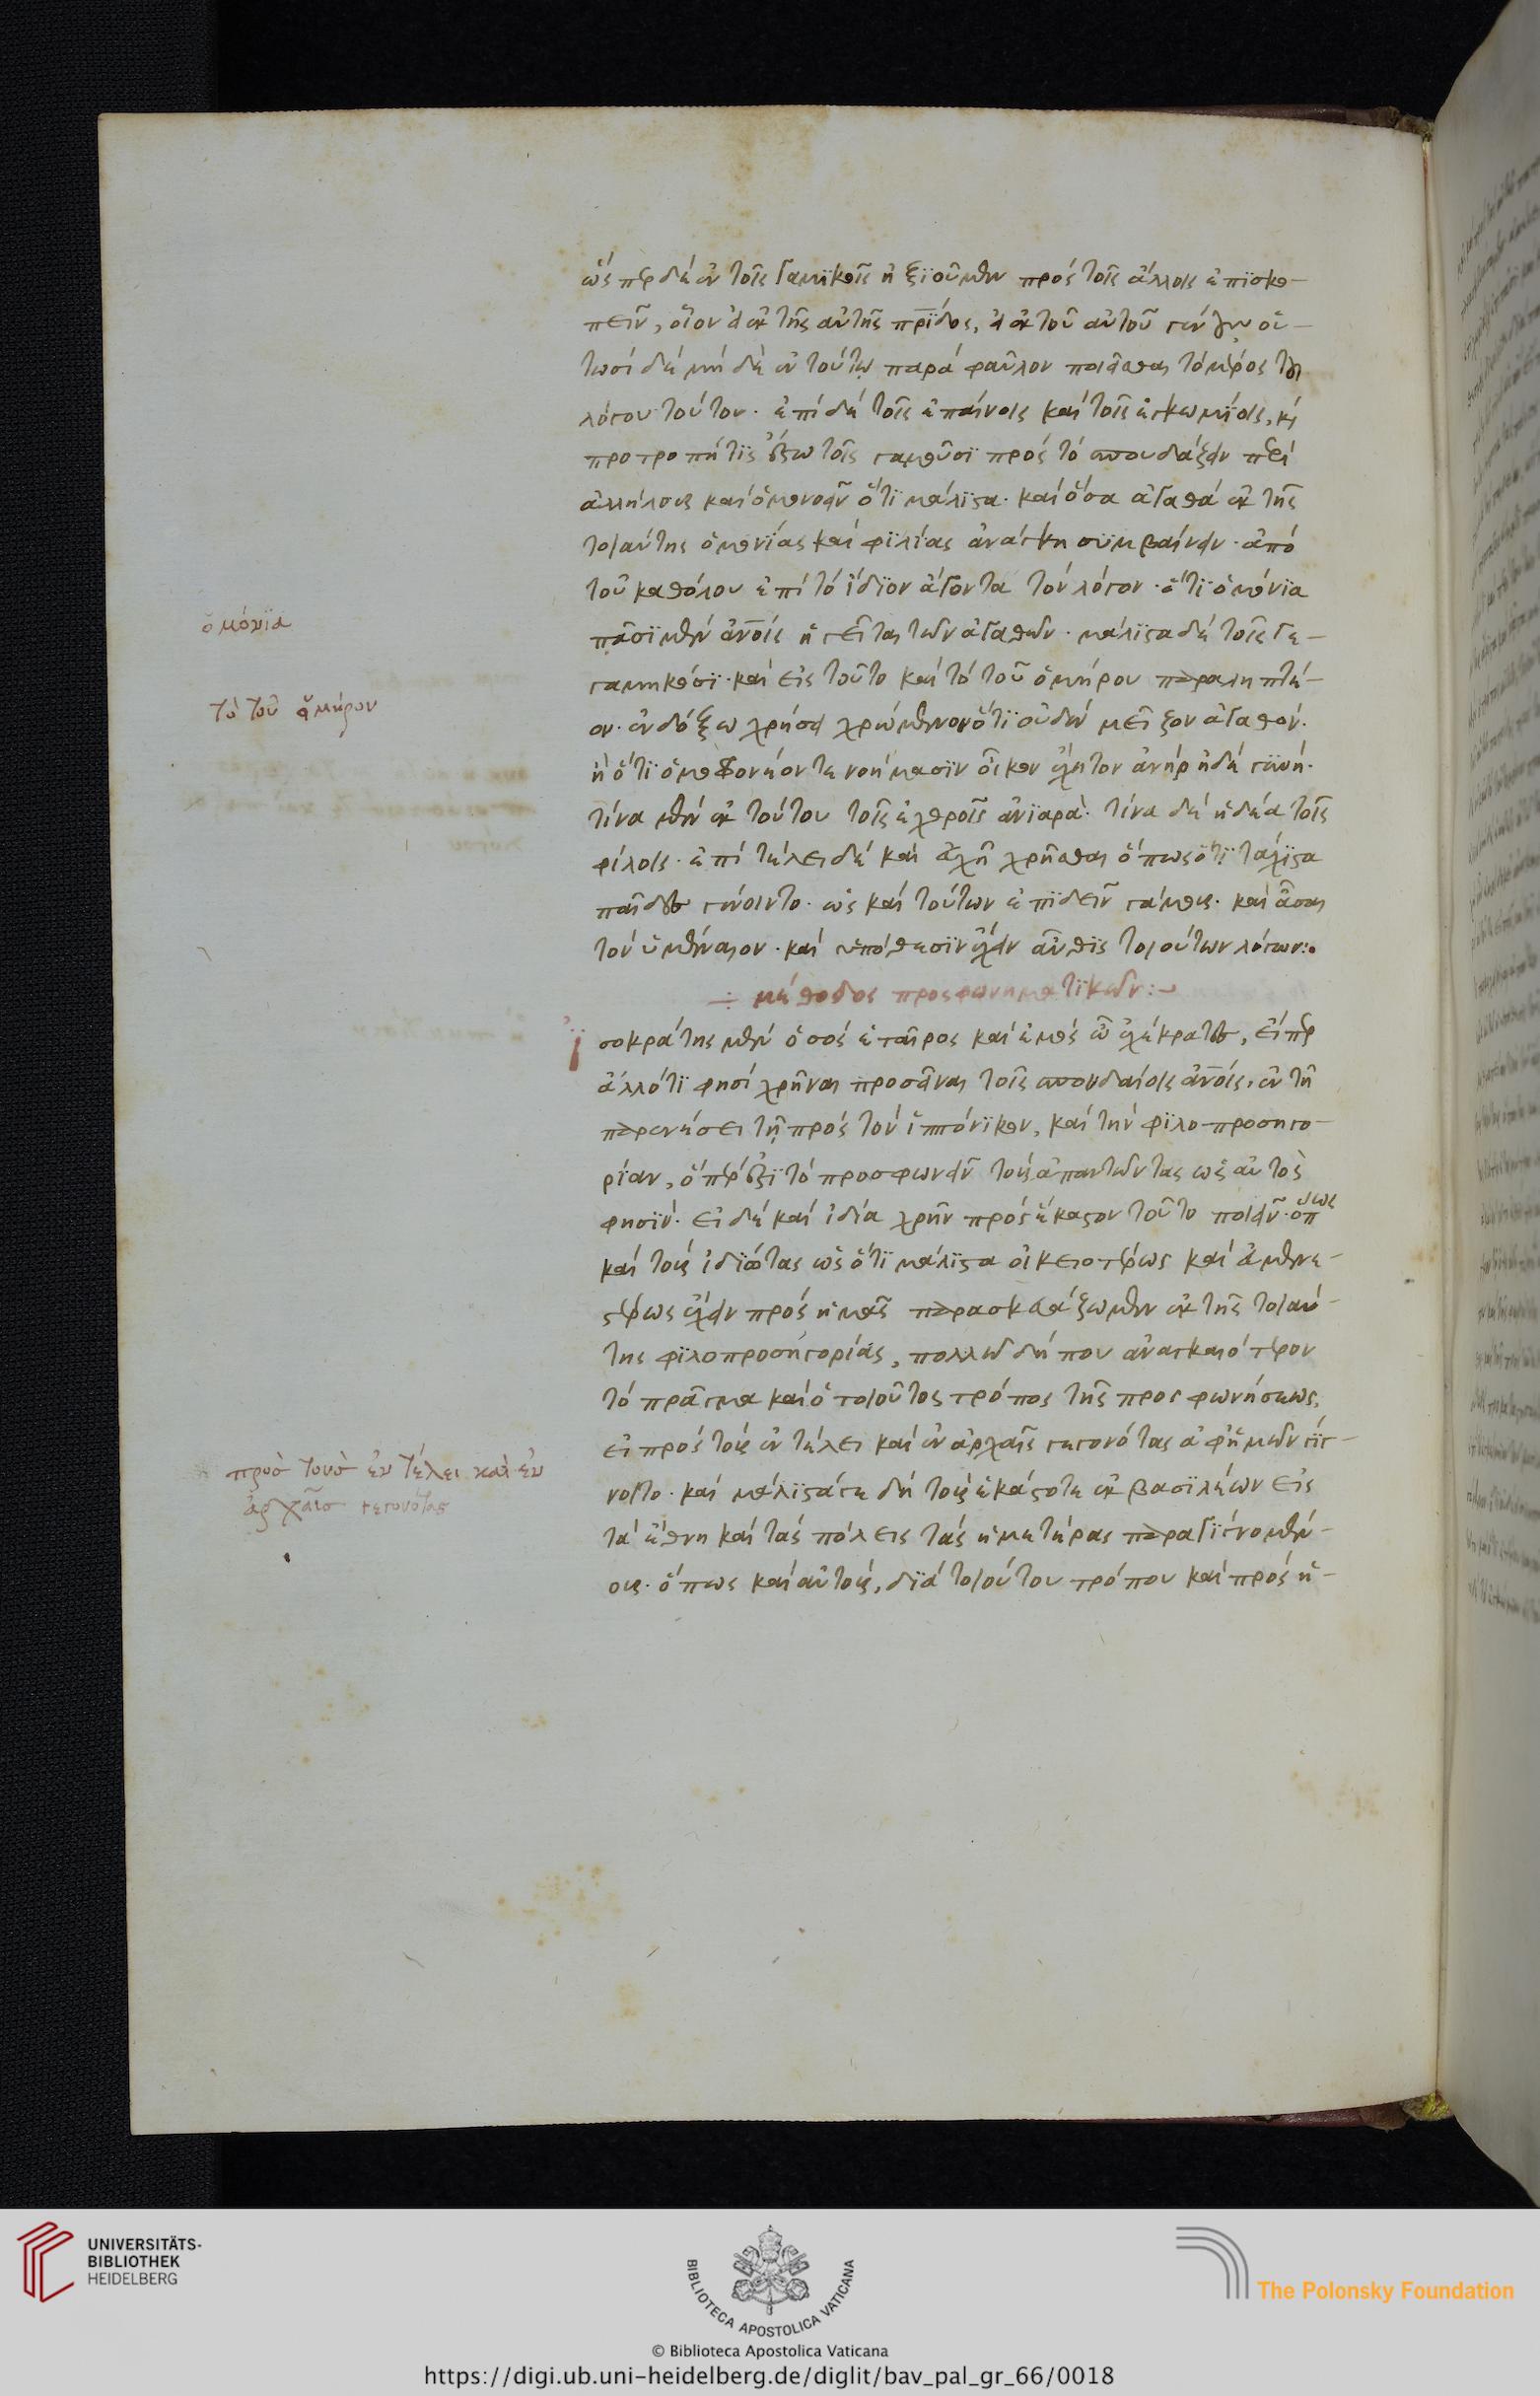 ὥσπερ δὲ ἐν τοῖς γαμικοῖς ἠξιοῦμεν πρὸς τοῖς ἄλλοις ἐπισκο-
πεῖν, οἷον εἰ ἐκ τῆς αὐτῆς πρίδος, εἰ ἐκ τοῦ αὐτοῦ γένους οὑ-
τωσὶ δὲ μηδὲ ἐν τούτῳ παρὰ φαῦλον ποιεῖσθαι τὸ μέρος τοῦ
λόγου τοῦτον. ἐπὶ δὲ τοῖς ἐπαίνοις καὶ τοῖς ἐγκωμίοις, κὶ
προτροπή τις ἔστω τοῖς γαμοῦσι πρὸς τὸ σπουδάζειν περὶ
ἀλλήλους καὶ ὁμονοεῖν ὅτι μάλιστα. καὶ ὅσα ἀγαθὰ ἐκ τῆς
τοιαύτης ὁμονίας καὶ φιλίας ἀνάγκη συμβαίνειν. ἀπὸ
τοῦ καθόλου ἐπὶ τὸ ἴδιον ἄγοντα τὸν λόγον. ὅτι ὁμόνια
πᾶσι μὲν ἀνοίς ἡγεῖται τῶν ἀγαθῶν. μάλιστα δὲ τοῖς γε-
γαμηκόσι. καὶ εἰς τοῦτο καὶ τὸ τοῦ ὁμήρου παραληπτέ-
ον. ἐνδόξω χρήσει χρώμενον ὅτι οὐδὲν μεῖζον ἀγαθόν.
ἢ ὅτι ὁμοφρονέοντε νοήμασιν οἶκον ἔχητον ἀνὴρ ἠδὲ γυνή.
τίνα μὲν ἐκ τούτου τοῖς ἐχθροῖς ἀνιαρά. τίνα δὲ ἡδέα τοῖς
φίλοις. ἐπὶ τέλει δὲ καὶ εὐχῆ χρῆσθαι ὅπως ὅτι τάχιστα
παῖδες γένοιντο. ὡς καὶ τούτων ἐπιδεῖν γάμους. καὶ ᾆσαι
τὸν ὑμέναιον. καὶ ὑπόθεσιν ἔχειν αὖθις τοιούτων λόγων:.
÷ μέθοδος προσφωνηματικῶν:-
Ἰσοκράτης μὲν ὁ σὸς ἑταῖρος καὶ ἐμὸς ὦ ἐχέκρατες, εἴπερ
ἄλλό τι φησὶ χρῆναι προσεῖναι τοῖς σπουδαίοις ἀνοίς, ἐν τῆ
παρενέσει τῆ πρὸς τὸν ἱππόνικον, καὶ τὴν φιλοπροσηγο-
ρίαν, ὅπέρ ἐστι τὸ προσφωνεῖν τοὺς ἀπαντῶντας ὡς αὐτὸς
φησίν. εἰ δὲ καὶ ἰδία χρῆν πρὸς ἕκαστον τοῦτο ποιεῖν. ὅπως
καὶ τοὺς ἰδιώτας ὡς ὅτι μάλιστα οἰκειοτέρως καὶ εὐμενε-
στέρως ἔχειν πρὸς ἡμᾶς παρασκευάζωμεν ἐκ τῆς τοιαύ-
της φιλοπροσηγορίας, πολλῶ δήπου ἀναγκαιότερον
τὸ πρᾶγμα καὶ ὁ τοιοῦτος τρόπος τῆς προσφωνήσεως,
εἰ πρὸς τοὺς ἐν τέλει καὶ ἐν ἀρχαῖς γεγονότας ἀφ' ἡμῶν γίγ-
νοιτο. καὶ μάλιστά γε δὴ τοὺς ἑκάστοτε ἐκ βασιλέων εἰς
τὰ ἔθνη καὶ τὰς πόλεις τὰς ἡμετέρας παραγιγνομέν-
ους. ὅπως καὶ αὐτοὺς, διὰ τοιούτου τρόπου καὶ πρὸς ἡ-
ὁμόνια
τὸ τοῦ ὁμήρου
πρὸσ τοὺσ ἐν τέλει καὶ ἐν
ἀρχαῖσ γεγονότασ
UNIVERSITÄTS-
BIBLIOTHEK
HEIDELBERG
BIBLIOTECA APOSTOLICA VATICANA
© Biblioteca Apostolica Vaticana
The Polonsky Foundation
https://digi.ub.uni-heidelberg.de/diglit/bav_pal_gr_66/0018